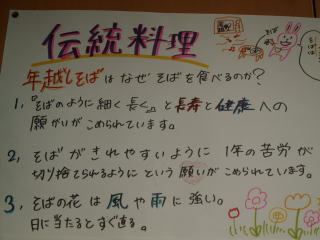 伝統料理
年越しそばはなぜそばを食べるのか？
1，『そばのように細く長く。』と長寿と健康への
願がいがこめられています。
2，そばがきれやすいように1年の苦労が
切り捨てられるようにという願いがこめられています。
3，そばの花は風や雨に強い。
日に当たるとすぐ直る。